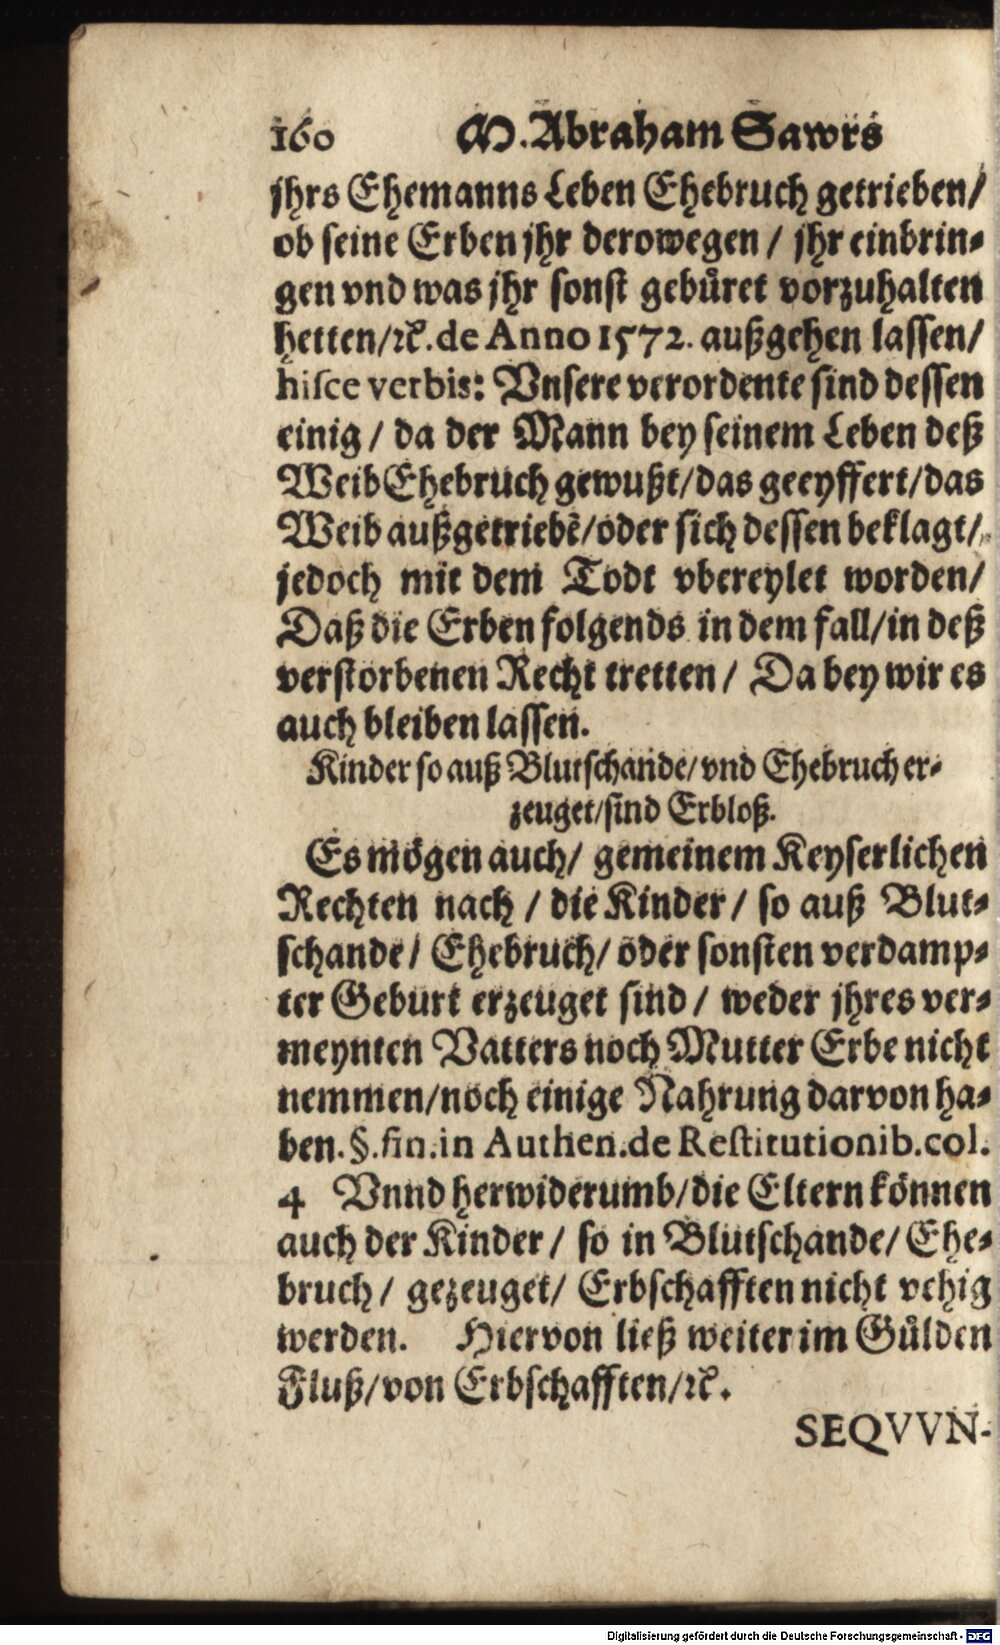 160 M. Abraham Sawrs
jhrs Ehemanns Leben Ehebruch getrieben/
ob seine Erben jhr derowegen / jhr einbrin⸗
gen vnd was jhr sonst gebuͤret vorzuhalten
hetten/ꝛc. de Anno 1572. außgehen lassen/
hisce verbis: Vnsere verordente sind dessen
einig / da der Mann bey seinem Leben deß
Weib Ehebruch gewußt/das geeyffert/das
Weib außgetriebẽ/oder sich dessen beklagt/
jedoch mit dem Todt vbereylet worden/
Daß die Erben folgends in dem fall/in deß
verstorbenen Recht tretten / Da bey wir es
auch bleiben lassen.
Kinder so auß Blutschande/vnd Ehebruch er⸗
zeuget/sind Erbloß.
Es mögen auch/ gemeinem Keyserlichen
Rechten nach / die Kinder / so auß Blut⸗
schande / Ehebruch/ oder sonsten verdamp⸗
ter Geburt erzeuget sind / weder jhres ver⸗
meynten Vatters noch Mutter Erbe nicht
nemmen/noch einige Nahrung darvon ha⸗
ben. §. fin. in Authen. de Restitutionib. col.
4 Vnnd herwiderumb/die Eltern können
auch der Kinder / so in Blutschande/ Ehe⸗
bruch / gezeuget/ Erbschafften nicht vehig
werden. Hiervon ließ weiter im Guͤlden
Fluß/von Erbschafften/ꝛc.
SEQVVN-
Digitalisierung gefördert durch die Deutsche Forschungsgemeinschaft - DFG